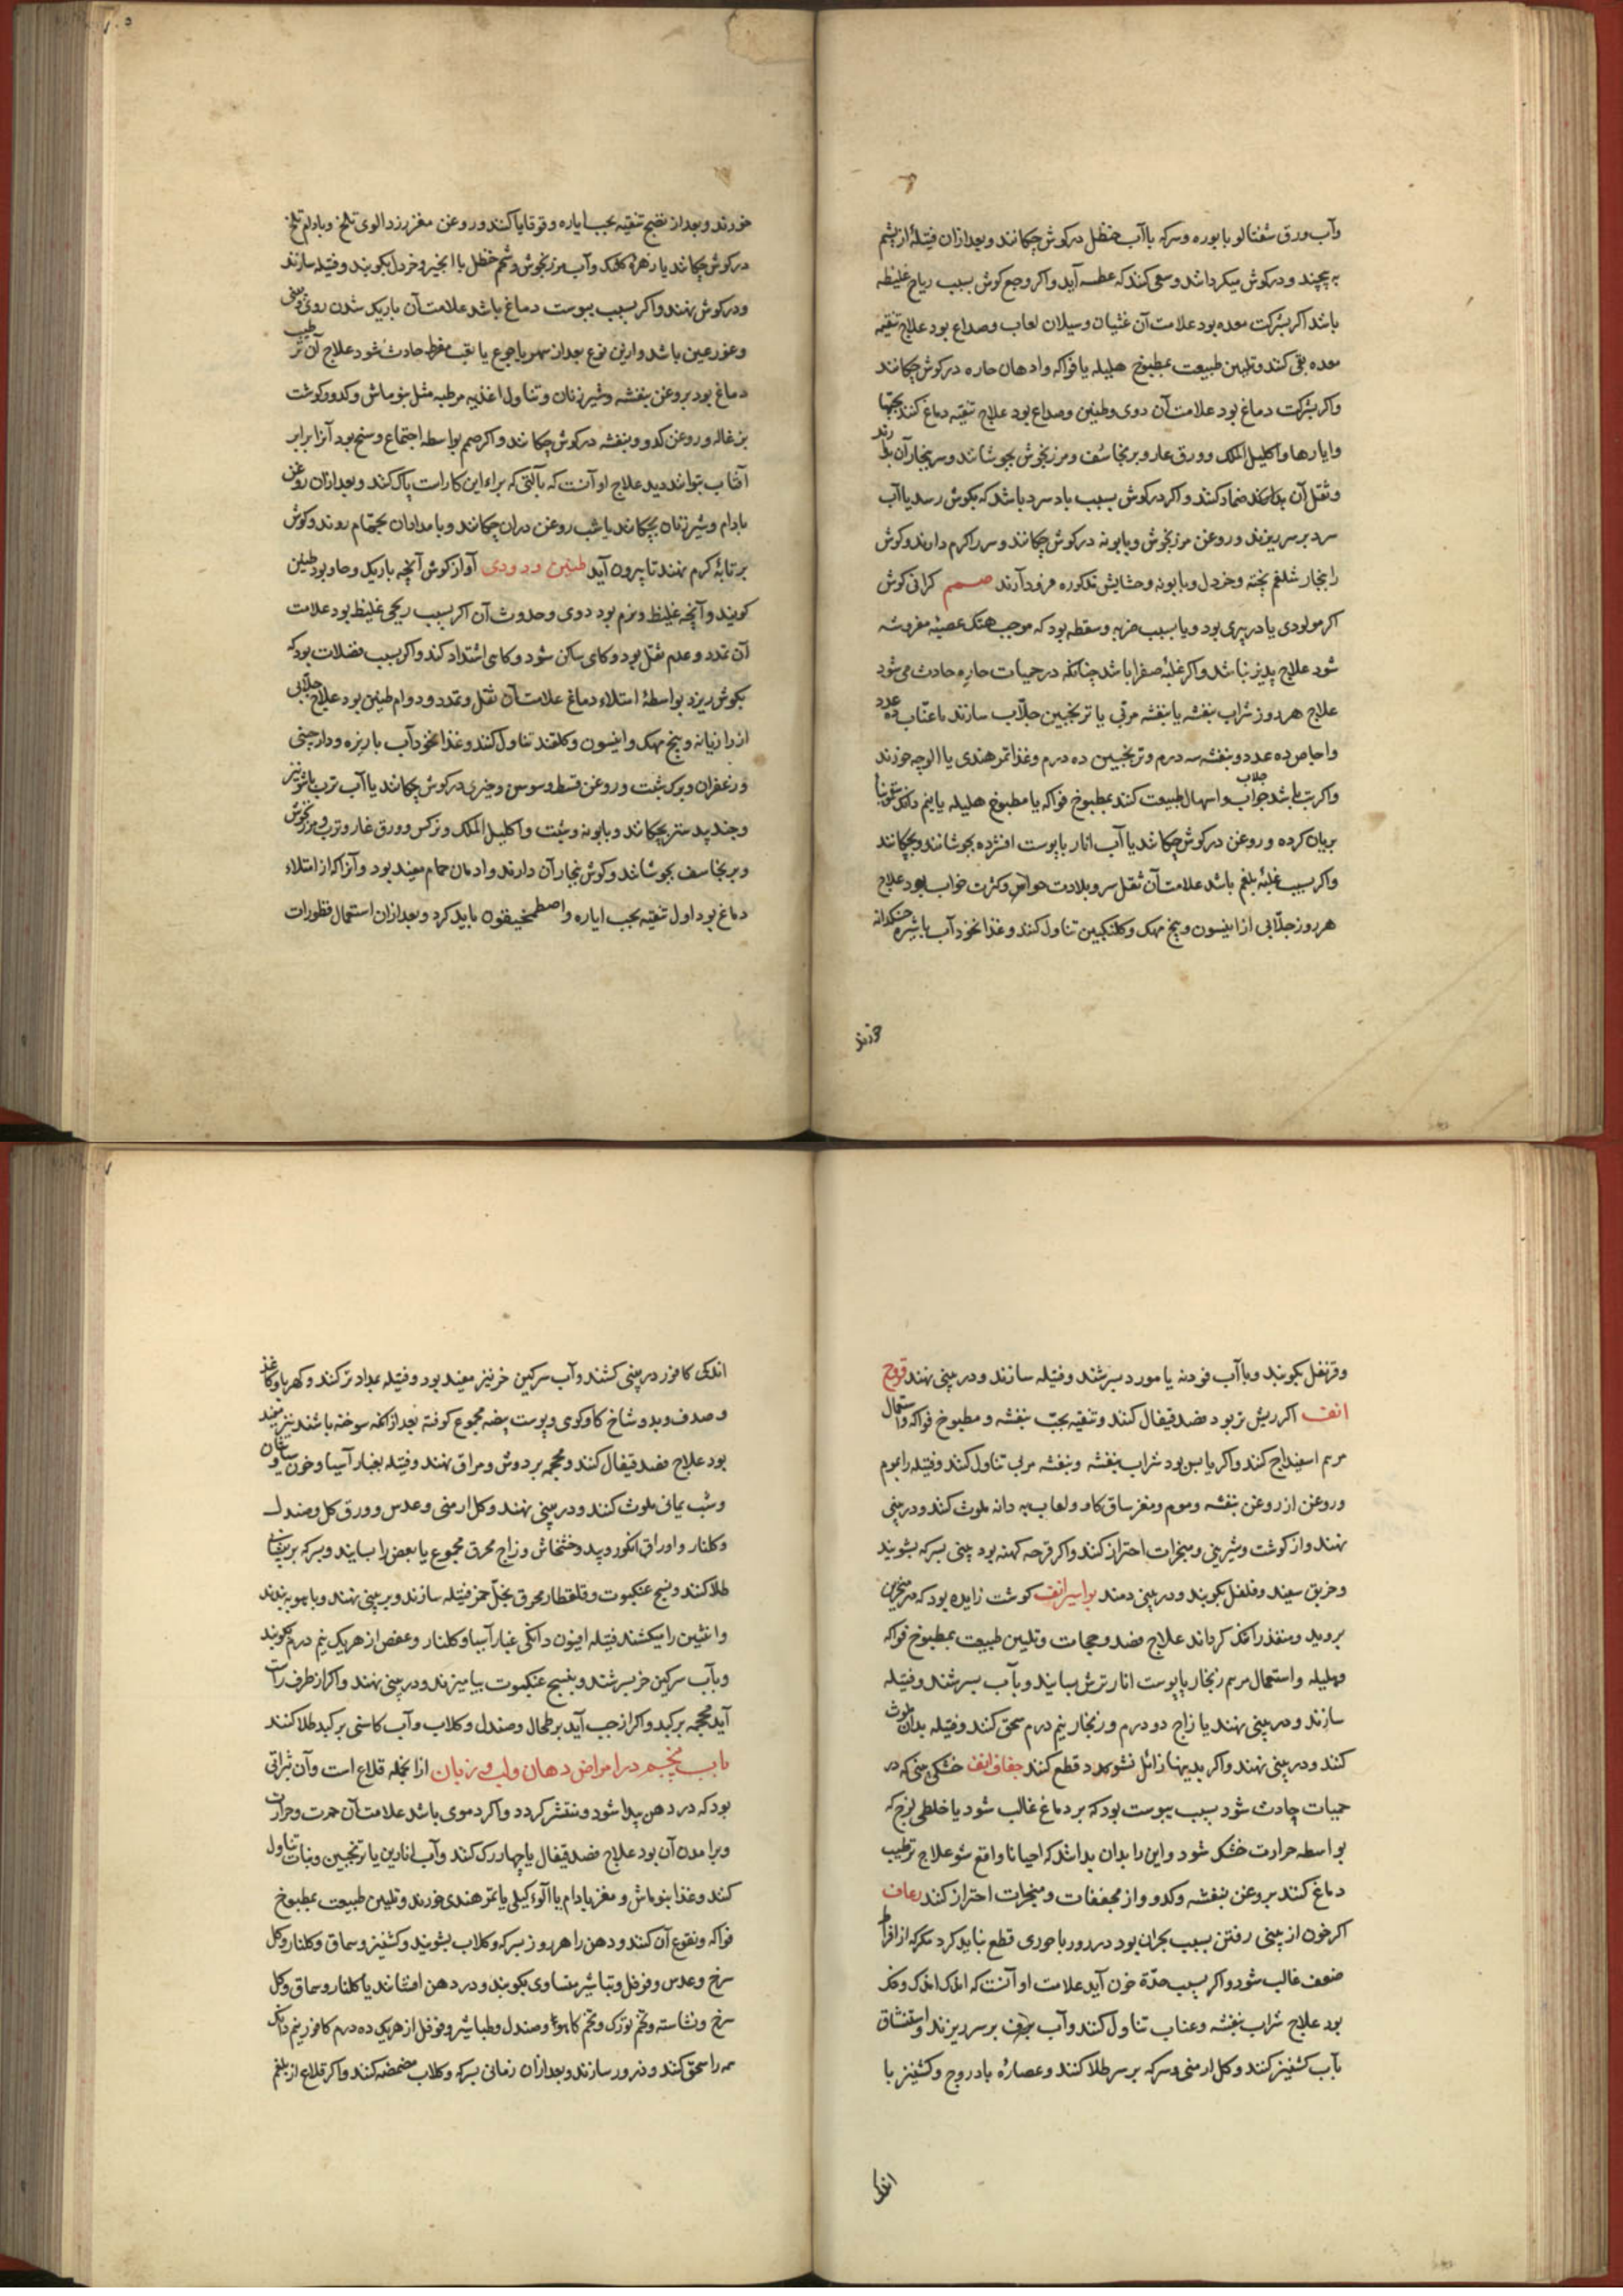 وآب ورق شفتالو با بوره وسرکه با آب حنظل در کوش چکانند وبعد ازان فتیلۀ از پشم
به پیچند و در کوش میکردانند وسعی کنند که عطسه آید واکر وجع کوش بسبب ریاح غلیظه
باشد اکر بشرکت معده بود علامت آن غثیان وسیلان لعاب وصداع بود علاج تنقیه
معده بقی کنند وتلیین طبیعت بمطبوخ هلیله یا فواکه وادهان حاره در کوش چکانند
واکر بشرکت دماغ بود علامت آن دوی وطنین وصداع بود علاج تنقیه دماغ کنند بحبها
وایارها واکلیل الملک وورق غار وبرنجاسف ومرزنجوش بجوشانند وسر ببخار آن دارند
وثقل آن بدان ضماد کنند واکر درد کوش بسبب باد سرد باشد که بکوش رسد یا آب
سرد بر سر ریزند وروغن مرزنجوش وبابونه در کوش چکانند وسر را کرم دارند وکوش
را ببخار شلغم پخته وخردل وبابونه وحشایش مذکوره فرود آرند صمم کرانی کوش
اکر مولودی یا در پیری بود ویا بسبب ضربه وسقطه بود که موجب هتک عصبۀ مفروشه
شود علاج پذیر نباشد واکر غلبۀ صفرا باشد چنانکه در حمیات حاره حادث می شود
علاج هر روز شراب بنفشه یا بنفشه مربی یا ترنجبین جلاب سازند با عناب ده عدد
واجاص ده عدد وبنفشه سه درم وترنجبین ده درم وغذا تمر هندی یا الوچه خورند
واکر تب باشد جلاب واسهال طبیعت کنند بمطبوخ فواکه یا مطبوخ هلیله یا نیم دانک سقمونیا
بریان کرده وروغن در کوش چکانند یا آب انار با پوست افشرده بجوشانند وبچکانند
واکر بسبب غلبۀ بلغم باشد علامت آن ثقل سر وبلادت حواس وکثرت خواب بود علاج
هر روز جلابی از انیسون وبیخ مهک وکلنکبین تناول کنند وغذا نخود آب با شیره خسکدانه
خورند
خورند وبعد از نضج تنقیه بحب ایاره وقوقایا کنند وروغن مغز زردالوی تلخ وبادام تلخ
در کوش چکانند یا زهره کلنک وآب مرزنجوش وشحم حنظل با انجیر وخردل بکوبند وفتیله سازند
ودر کوش نهند واکر بسبب یبوست دماغ باشد علامت آن باریک شدن روی وبینی
وغور عین باشد واین نوع بعد از سهر یا جوع یا تعب مفرط حادث شود علاج آن ترطیب
دماغ بود بروغن بنفشه وشیر زنان وتناول اغذیه مرطبه مثل بنو ماش وکدو وکوشت
بزغاله وروغن کدو وبنفشه در کوش چکانند واکر صمم بواسطه اجتماع وسخ بود آنرا برابر
آفتاب بتوانند دید علاج او آنست که بآلتی که براء این کار است پاک کنند وبعد ازان روغن
بادام وشیر زنان بچکانند یا شب روغن دران چکانند وبامدادان بحمام روند وکوش
بر تابۀ کرم نهند تا بیرون آید طنین ودوی آواز کوش آنچه باریک وحاد بود طنین
کویند وآنچه غلیظ ونرم بود دوی وحدوث آن اکر بسبب ریحی غلیظ بود علامت
آن تمدد وعدم ثقل بود وکاهی ساکن شود وکاهی اشتداد کند واکر بسبب فضلات بود که
بکوش ریزد بواسطۀ امتلاء دماغ علامت آن ثقل وتمدد ودوام طنین بود علاج جلابی
از رازیانه وبیخ مهک وانیسون وکلقند تناول کنند وغذا نخود آب با زیره ودارچینی
وزعفران وبرک شبت وروغن قسط وسوسن وخیری در کوش چکانند یا آب ترب با شونیز
وجندبیدستر بچکانند وبابونه وشبت واکلیل الملک ونرکس وورق غار وترب ومرزنجوش
وبرنجاسف بجوشانند وکوش ببخار آن دارند وادمان حمام مفید بود وآنرا که از امتلاء
دماغ بود اول تنقیه بحب ایاره واصطمخیقون باید کرد وبعد ازان استعمال قطورات
وقرنفل بکوبند وبا آب فودنه یا مورد بسرشند وفتیله سازند ودر بینی نهند قروح
انف اکر ریش تر بود فصد قیفال کنند وتنقیه بحب بنفشه ومطبوخ فواکه واستعمال
مرهم اسفیداج کنند واکر یابس بود شراب بنفشه وبنفشه مربی تناول کنند وفتیله را بموم
وروغن از روغن بنفشه وموم ومغز ساق کاو ولعاب به دانه ملوث کنند ودر بینی
نهند واز کوشت وشیرینی ومبخرات احتراز کنند واکر قرحه کهنه بود بینی بسرکه بشویند
وخربق سفید وفلفل بکوبند ودر بینی دمند بواسیر انف کوشت زایده بود که در منخرین
بروید ومنفذ را تنک کرداند علاج فصد وحجامت وتلیین طبیعت بمطبوخ فواکه
وهلیله واستعمال مرهم زنجار یا پوست انار ترش بسایند وبآب بسرشند وفتیله
سازند ودر بینی نهند یا زاج دو درم وزنجار نیم درم سحق کنند وفتیله بدان ملوث
کنند ودر بینی نهند واکر بدینها زائل نشود قطع کنند جفاف انف خشکی بینی که در
حمیات حادث شود بسبب یبوست بود که بر دماغ غالب شود یا خلطی لزج که
بواسطه حرارت خشک شود واین را بدان بدانند که احیانا واقع شود علاج ترطیب
دماغ کنند بروغن بنفشه وکدو واز مجففات ومبخرات احتراز کنند رعاف
اکر خون از بینی رفتن بسبب بحران بود در روز باحوری قطع نباید کرد مکر که از افراط
ضعف غالب شود واکر بسبب حدّة خون آید علامت او آنست که اندک اندک وتنک
بود علاج شراب بنفشه وعناب تناول کنند وآب برف بر سر ریزند واستنشاق
بآب کشنیز کنند وکل ارمنی وسرکه بر سر طلا کنند وعصارۀ بادروج وکشنیز با
اندکی
اندکی کافور در بینی کشند وآب سرکین خر نیز مفید بود وفتیله بمداد تر کنند وکهربا وکاغذ
وصدف وبد وشاخ کاو کوی وپوست بیضه مجموع کوفته بعد از آنکه سوخته باشند نیز مفید
بود علاج فصد قیفال کنند ومحجمه بر دوش ومراق نهند وفتیله بغبار آسیا وخون سیاوشان
وشب یمانی ملوث کنند ودر بینی نهند وکل ارمنی وعدس وورق کل وصندل
وکلنار واوراق انکور وبید وخشخاش وزاج محرق مجموع یا بعض را بسایند وبسرکه بر پیشانی
طلا کنند ونسج عنکبوت وقلقطار محرق بخل خمر فتیله سازند وبر بینی نهند وبازو به بندند
وانثیین را بکشند فتیله افیون دانکی غبار آسیا وکلنار وعفص از هر یک نیم درم بکوبند
وبآب سرکین خر بسرشند وبنسج عنکبوت بیامیزند ودر بینی نهند واکر از طرف راست
آید محجمه بر کبد واکر از چپ آید بر طحال وصندل وکلاب وآب کاسنی بر کبد طلا کنند
باب پنجم در امراض دهان ولب وزبان از انجمله قلاع است وآن بثراتی
بود که در دهن پیدا شود ومنتشر کردد واکر دموی باشد علامت آن حمرت وحرارت
وبرآمدن آن بود علاج فصد قیفال یا چهار رک کنند وآب انارین یا ترنجبین ونبات تناول
کنند وغذا بنو ماش ومغز بادام یا آلوء کیلی یا تمر هندی خورند وتلیین طبیعت بمطبوخ
فواکه ونقوع آن کنند ودهن را هر روز بسرکه وکلاب بشویند وکشنیز وسماق وکلنار وکل
سرخ وعدس وفوفل وتباشیر متساوی بکوبند ودر دهن افشانند یا کلنار وسماق وکل
سرخ ونشاسته وتخم تورک وتخم کاهو وصندل وطباشیر وفوفل از هر یک ده درم کافور نیم دانک
همه را سحق کنند وذرور سازند وبعد ازان زمانی بسرکه وکلاب مضمضه کنند واکر قلاع از بلغم